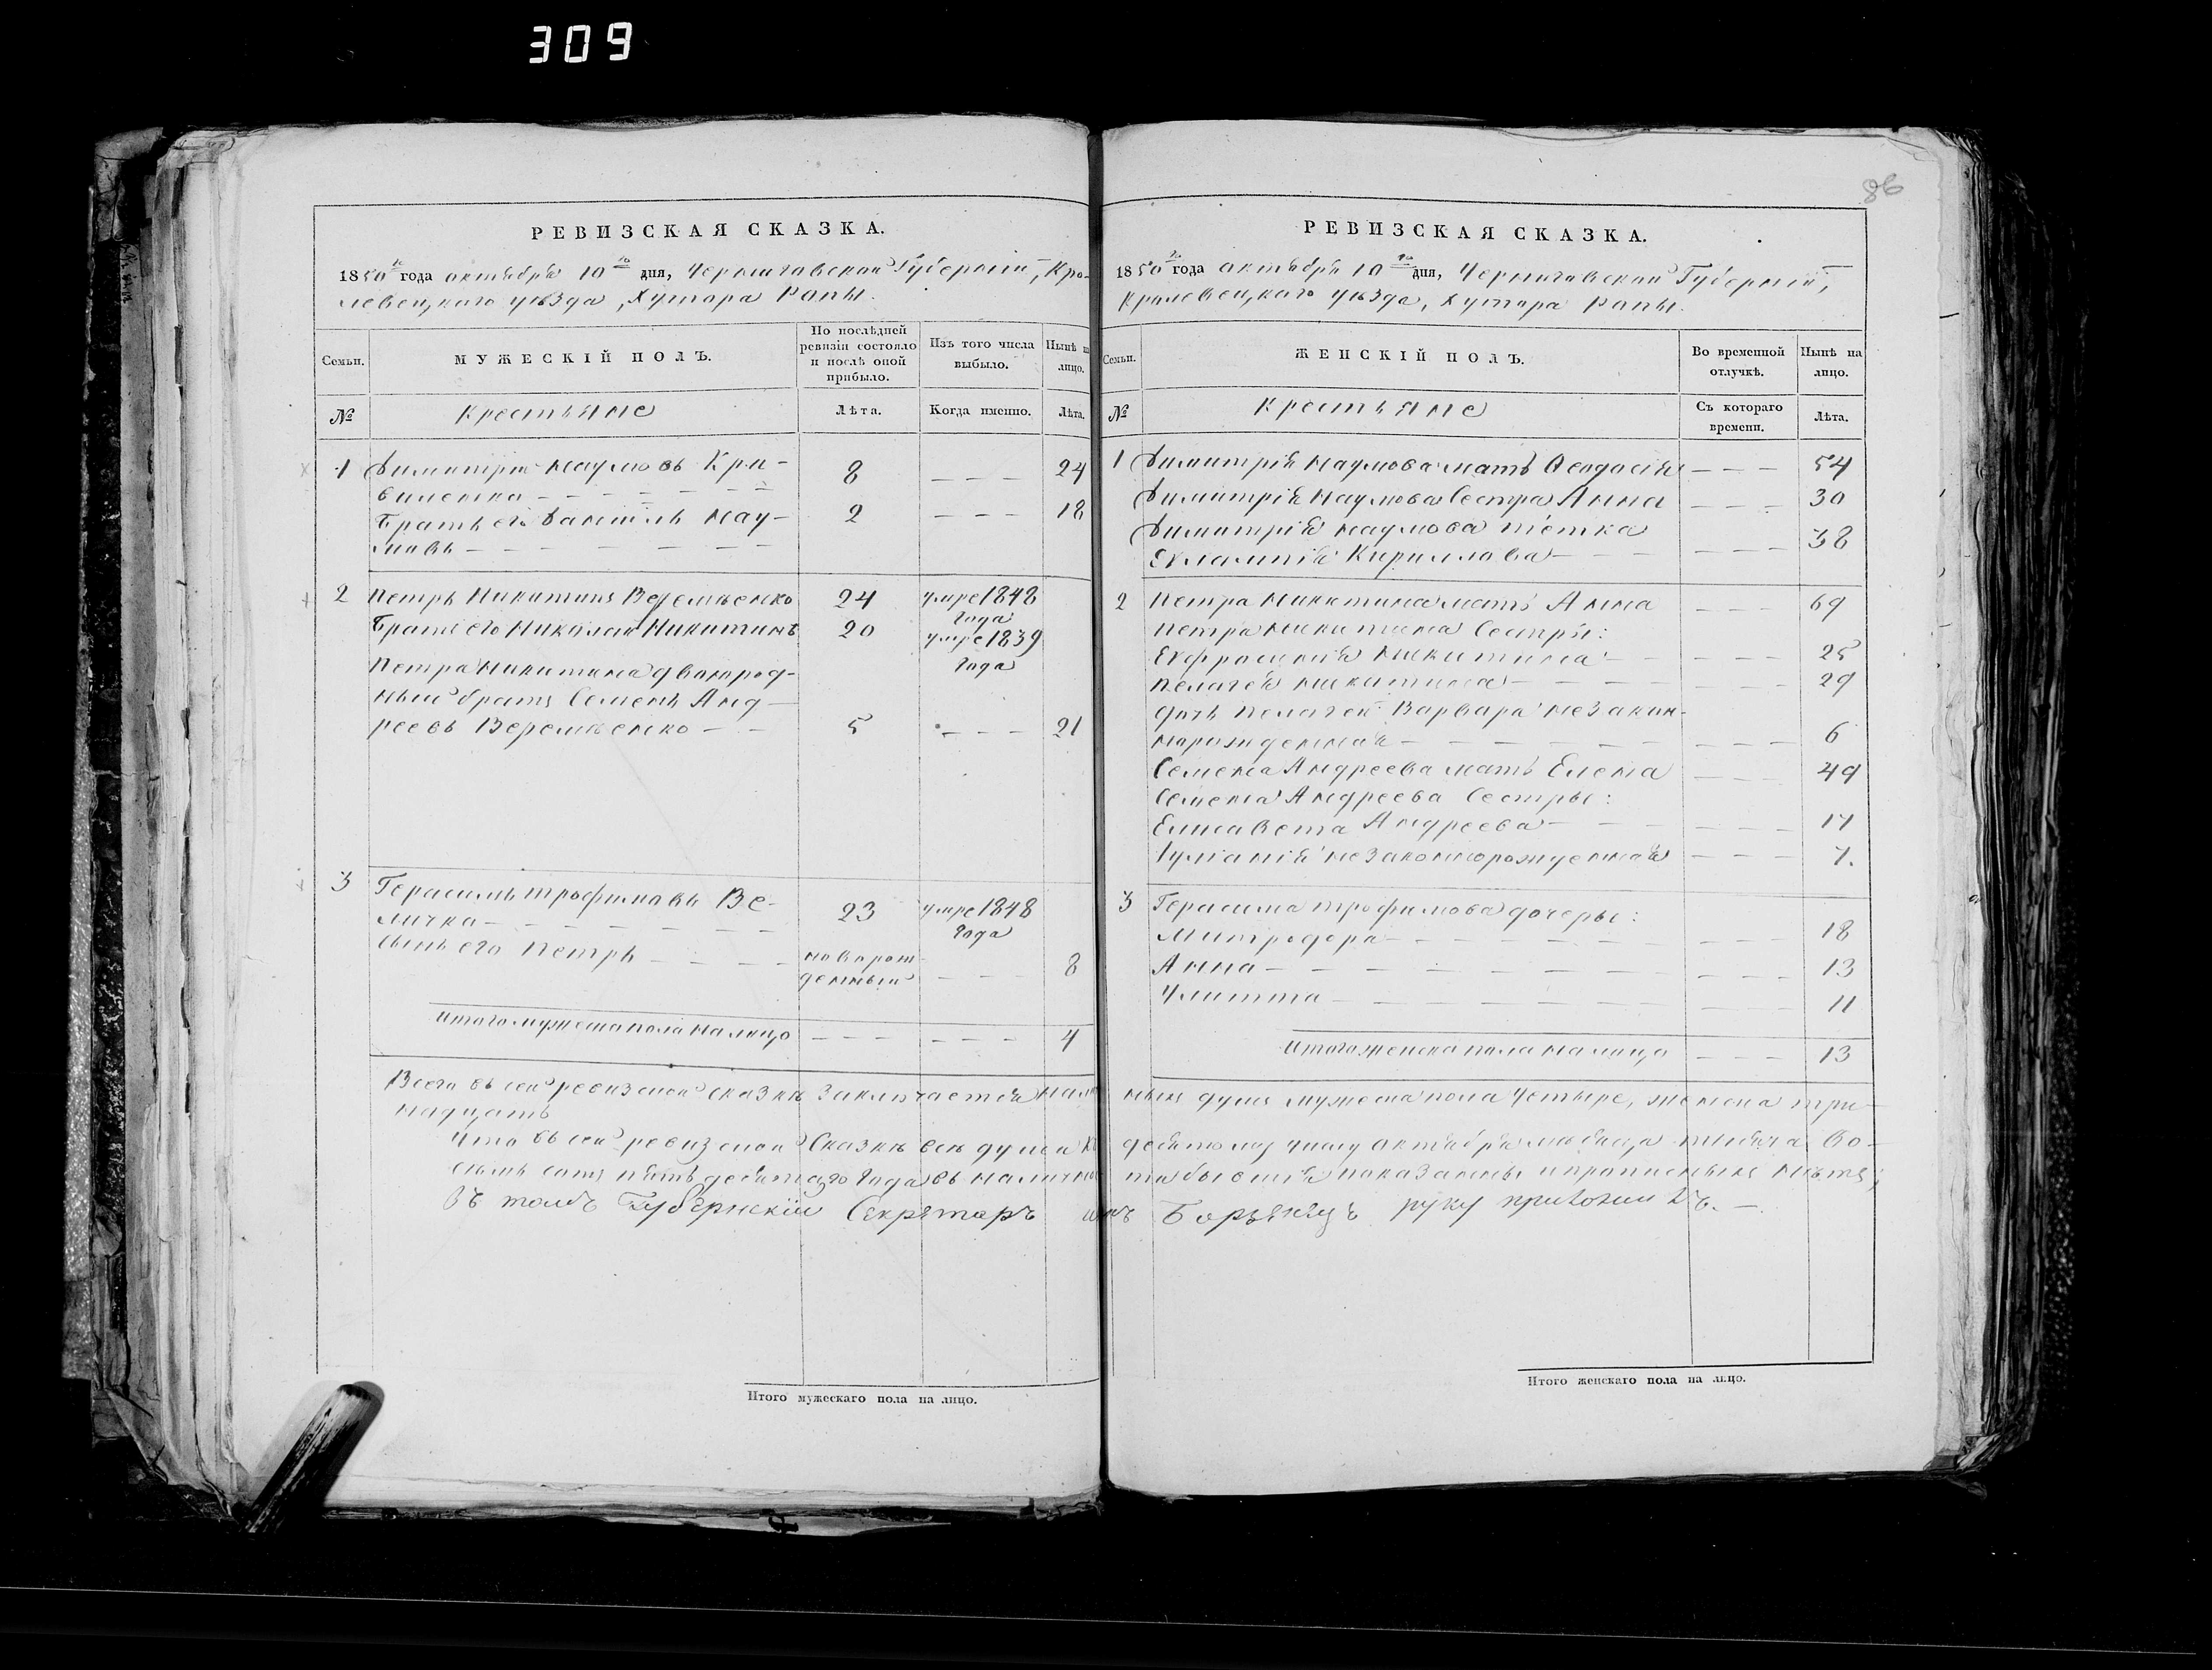 309
86
РЕВИЗСКАЯ СКАЗКА.
1850го года октября 10го дня, Черниговской Губернiи, Кро-
левецкаго уезда, Хутора Рапы.
Семьи.
МУЖЕСКІЙ ПОЛЪ.
По послѣдней ревизіи состояло и послѣ оной прибыло.
Изъ того числа выбыло.
Нынѣ на лицо.
№
Крестьяне
Лѣта.
Когда именно.
Лѣта.
1 Димитрій Наумовъ Кри-
вилетка 8 24
Братъ его Даніилъ Нау-
мовъ 2 18
2 Петръ Никитинъ Веремѣенко 24 умре 1848 года
Братъ его Николай Никитинъ 20 умре 1839 года
Петра Никитина двоюрод-
ный братъ Семенъ Анд-
реевъ Веремѣенко 5 21
3 Герасимъ Трофимовъ Ве-
личка 23 умре 1848 года
Сынъ его Петръ новорож-
денный 8
Итого мужеска пола на лицо 4
РЕВИЗСКАЯ СКАЗКА.
1850го года октября 10го дня, Черниговской Губерніи,
Кролевецкаго уезда, Хутора Рапы.
Семьи.
ЖЕНСКІЙ ПОЛЪ.
Во временной отлучкѣ.
Нынѣ на лицо.
№
Крестьяне
Съ котораго времени.
Лѣта.
1 Димитрія Наумова мать Феодосія 54
Димитрія Наумова Сестра Анна 30
Димитрія Наумова тетка
Евлампія Кириллова 38
2 Петра Никитина мать Анна 69
Петра Никитина Сестры:
Евфросинія Никитина 25
Пелагея Никитина 29
дочь Пелагеи Варвара незакон-
норожденная 6
Семена Андреева мать Елена 49
Семена Андреева Сестры:
Елисавета Андреева 17
Іуліанія незаконнорожденная 7.
3 Герасима Трофимова дочеры:
Митродора 18
Анна 13
Улитта 11
Итого женска пола на лицо 13
Всего въ сей ревизской сказкѣ заключается налич ныхъ душъ мужеска пола четыре, женска три-
надцать
Что въ сей ревизской Сказкѣ всѣ души къ девятому числу октября мѣсяца тысяча во-
семь сотъ пятьдесятаго года въ наличнос ти бывшія показаны и прописныхъ нѣтъ;
Въ томъ Губернскій Секретаръ Борзянецъ руку приложилъ.
Итого мужескаго пола на лицо.
Итого женскаго пола на лицо.